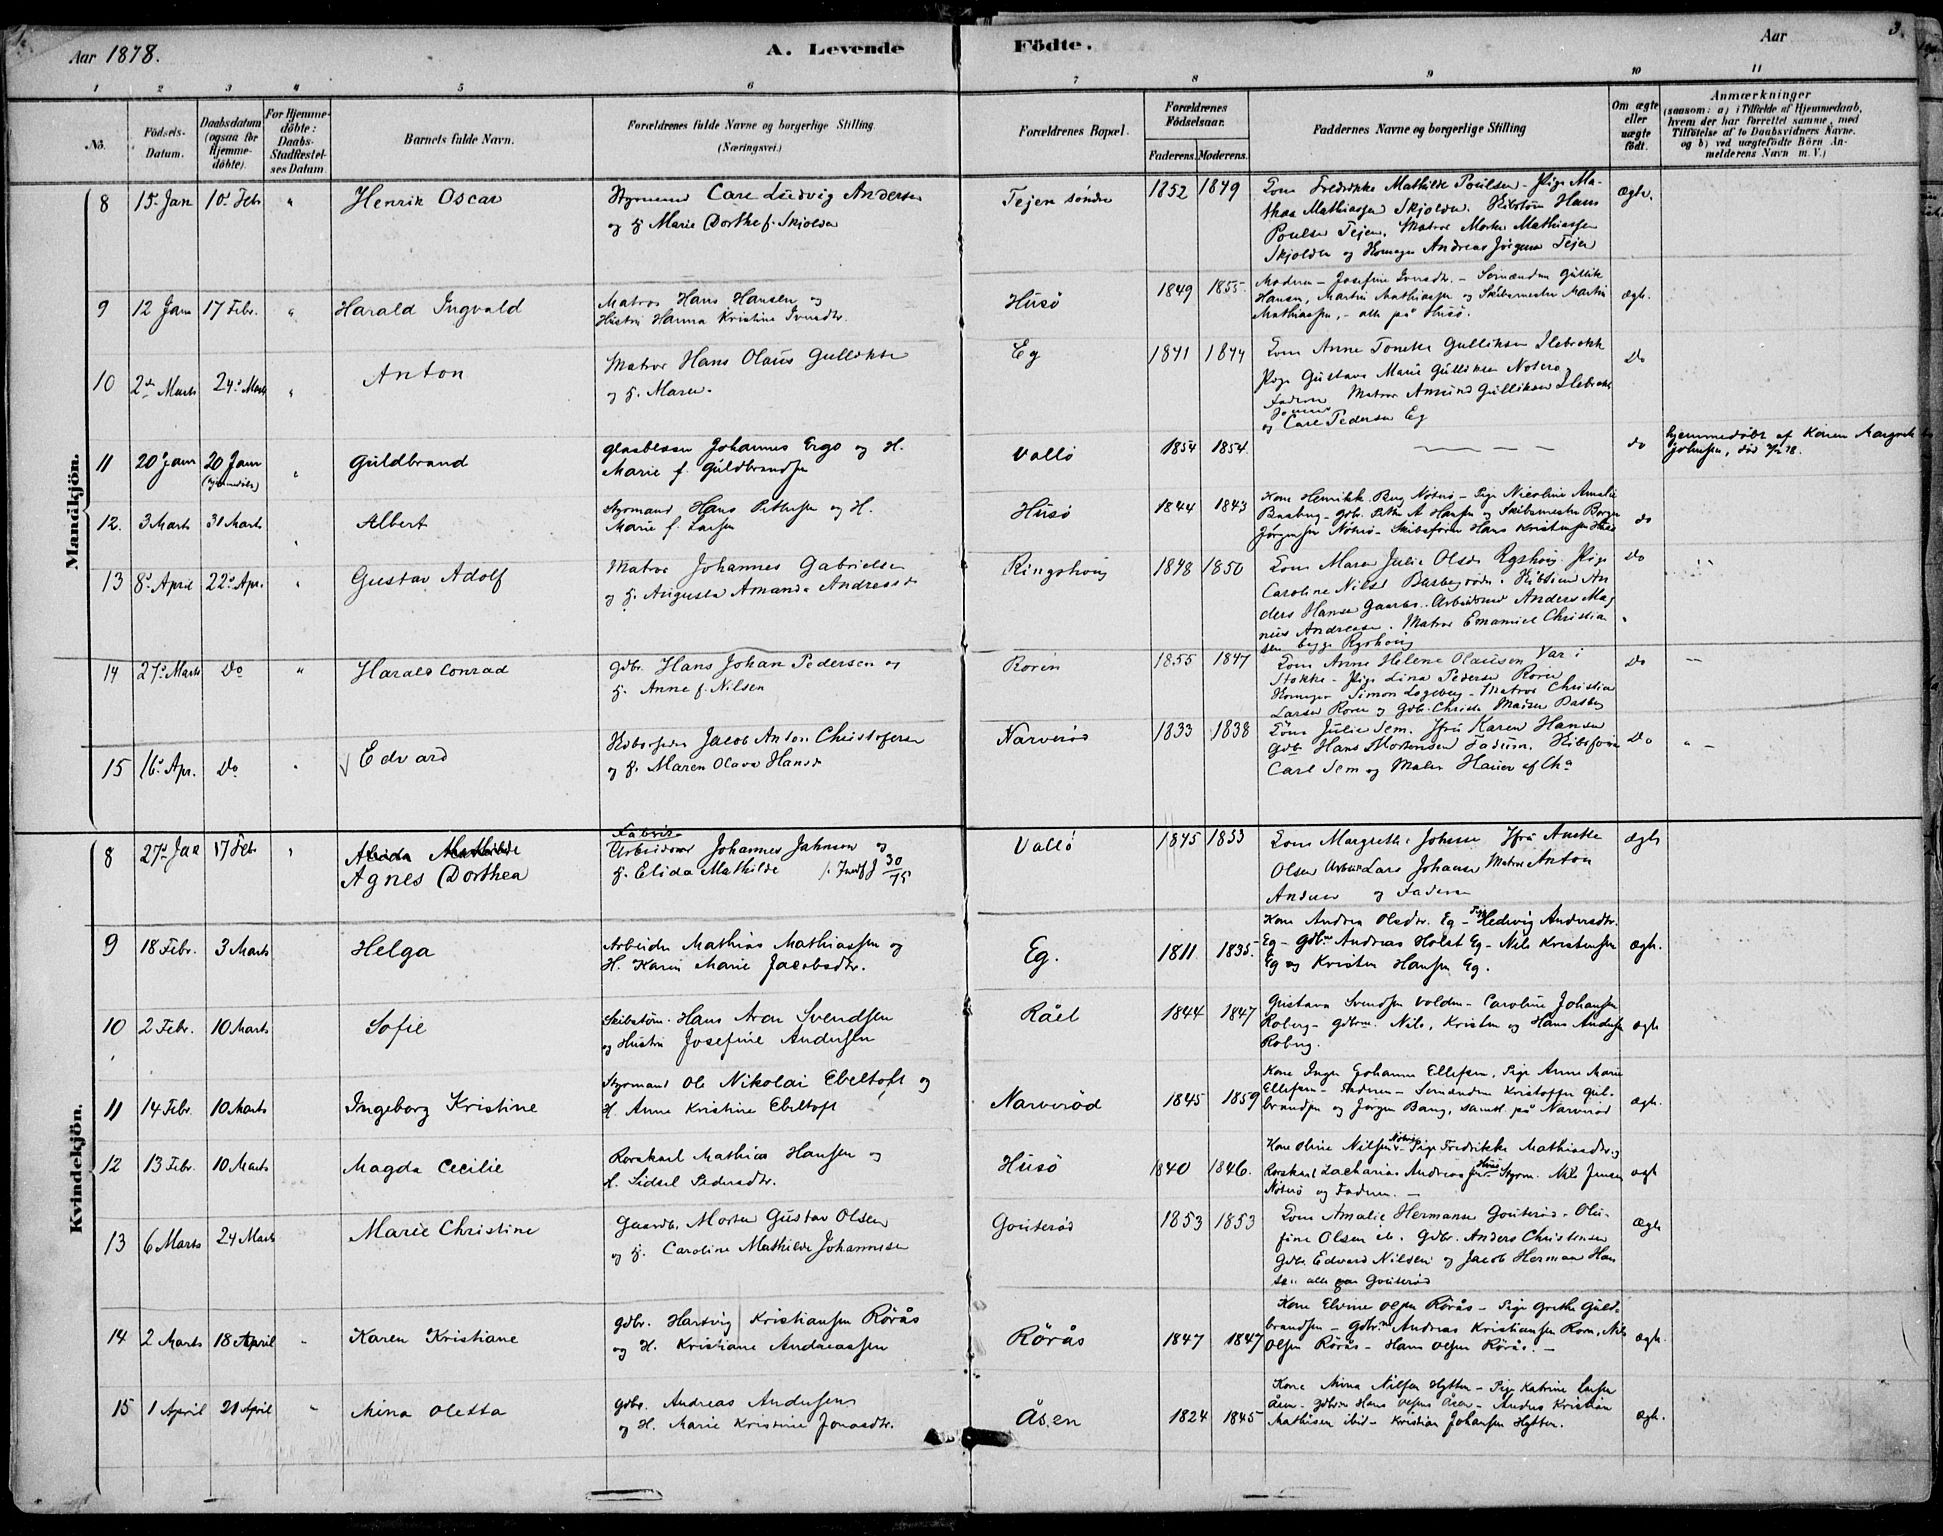 Aar 1878.
A. Levende Födte.
Aar
3.
1 2 3 4 5 6 7 8 9 10 11
No.
Födsels-
Datum.
Daabsdatum
(ogsaa for
Hjemme-
döbte).
For Hjemme-
döbte:
Daabs-
Stadfæstel-
ses Datum
Barnets fulde Navn.
Forældrenes fulde Navne og borgerlige Stilling.
(Næringsvei.)
Forældrenes Bopæl.
Forældrenes
Födselsaar.
Faderens. Moderens.
Faddernes Navne og borgerlige Stilling
Om ægte
eller
uægte
födt.
Anmærkninger
(saasom: a) i Tilfælde af Hjemmedaab,
hvem der har forrettet samme, med
Tilföielse af to Daabsvidners Navne.
og b) ved uægtefödte Börn An-
melderens Navn m. V.)
Mandkjön.
8 15 Jan 10 Feb " Henrik Oscar
Styrmand Carl Ludvig Andersen
og H. Marie Dorthe f. Skjolden
Tejen söndre 1852 1849
Fredrikke Mathilde Poulsen - Pige Ma-
thea Mathiassen Skjolden. Hans
Poulsen Tejen, Matros Morten Mathiassen
Skjolden og Andreas Jörgensen Tejen
ægte.
9 12 Jan 17 Febr. " Harald Ingvald
Matros Hans Hansen og
Hustru Hanna Kristine Iversdtr.
Husö 1849 1855
Moderen - Josefine Iversdtr. - Sömændene Gullik
Hansen, Martin Mathiassen og Skibsmester Martin
Mathiassen, - alle på Husö.
ægte.
10 2den Marts 24de Marts " Anton
Matros Hans Olaus Gulliksen
og H. Maren.
Eg 1841 1844
Anne Tonette Gulliksen Ilebrekke
Pige Gustava Marie Gulliksen Noterö
Faderen Matros Amund Gulliksen Ilebrekke
og Carl Pedersen Eg
Do
11 20 Jan 20 Jan (hjemmedöbt) " Guldbrand
Glasblæser Johannes Ergo og H.
Marie f. Guldbrandsen
Vallö 1854 1854. — — — do
hjemmedöbt af Karen Margrete
Johnsen, död
12. 3 Marts 31 Marts " Albert
Styrmand Hans Pettersen og H.
Marie f. Larsen
Husö 1844 1843
Kone Henrikke Berg Nöterö - Pige Nicoline Amalie
Basberg - Gdbr. Peder A Hansen og Skibsmester Borger
Jörgensen Nöterö - Skibsförer Hans Kristensen Husö
do
13 8de April 22de Apr. " Gustav Adolf
Matros Johannes Gabrielsen
og H. Augusta Amanda Andreasdr
Ringshoug 1848 1850
Maren Julie Olsdr Rgshoug. Pige
Caroline Nilsd Basbergröd. An-
ders Hansen Arbeidsmd Anders Mag-
nus Andreasen. Matros Emanuel Christian-
sen begge Rgshoug
Do
14 27de Marts Do " Harald Conrad
Gdbr. Hans Johan Pedersen og
H. Anne f. Nilsen
Roren 1855 1847
Anne Helene Olausen Var i
Stokke - Pige Lina Pedersen Roren
Simon Logeberg - Matros Christian
Larsen Roren og Gdbr. Christen Madsen Basberg
Do
15 16de Apr. Do " Edvard
Jacob Anton Christofersen
og H. Maren Olava Hansd
Narveröd 1833 1838
Julie Sem. Jfru Karen Hansen
Gdbr Hans Mortensen Fadum.
Carl Sem og Maler Hauer af Cha
Do
Kvindekjön.
8 27de Jan 17 Feb " Alida Mathilde
Agnes Dorthea
Fabrik-
Arbeidsmd Johannes Jahnsen og
H. Elida Mathilde f. 30/75
Vallö 1845 1853
Margrethe Johnsen Jfru Anette
Olsen Lars Johansen Matros Anton
Andersen og Faderen
Ægte
9 18 Febr. 3 Marts Helga
Arbeider Mathias Mathiassen og
H. Karen Marie Jacobsdtr.
Eg. 1811 1835
Kone Andrea Olsdtr. Eg - Pige Hedevig Andersdtr.
Eg - Gdbr. Andreas Holst Eg - Nils Kristensen
Eg og Kristen Hansen Eg.
Ægte.
10 2 Febr. 10 Marts Sofie
Skibstöm. Hans Aron Svendsen
og Hustru Josefine Andersen
Råel 1844 1847
Gustava Svendsen Volden - Caroline Johansen
Roberg - Gdbrne. Nils, Kristen og Hans Andersen
Roberg.
ægte
11 14 Febr. 10 Marts Ingeborg Kristine
Styrmand Ole Nikolai Ebeltoft og
H. Anne Kristine Ebeltoft
Narveröd 1845 1859
Kone Inger Johanne Ellefsen, Pige Anne Marie
Ellefsen - Faderen - Sömændene Kristoffer Gul-
brandsen og Jörgen Bang, samtl. på Narveröd
ægte.
12 13 Febr. 10 Marts Magda Cecilie
Rorskarl Mathias Hansen og
H. Sidsel Pedersdtr.
Husö 1840 1846.
Kone Oline Nilsen Nöterö - Pige Fredrikke Mathiasdtr og
Rorskarl Zacharias Andreassen Husö - Styrm. Nils Jensen
Nöterö og Faderen. -
ægte
13 6 Marts 24 Marts Marie Christine
Gaardb. Morten Gustav Olsen
og H. Caroline Mathilde Johannesen
Gouteröd 1853 1853
Amalie Hermansen Gouteröd - Olu-
fine Olsen Gdbr. Anders Christensen
Gdbr. Edvard Nilsen og Jacob Herman Han-
sen alle paa Gouteröd
Ægte
14 2 Marts 18 April " Karen Kristiane
Gdbr. Hartvig Kristiansen Rörås
og H. Kristiane Andreassen
Rörås 1847 1847
Kone Elvine Olsen Rörås - Pige Grethe Guld-
brandsen - Gdbrne Andreas Kristiansen Rorn, Nils
Olsen Rörås - Hans Olsen Rörås. -
ægte.
15 1 April 21 April " Mina Oletta
Gdbr. Andreas Andersen
og H. Marie Kristine Jonasdtr.
Åsen 1824 1845
Kone Mina Nilsen Hytten - Pige Katrine Larsen
Åsen - Gdbrne Hans Olsen Åsen - Anders Kristian
Mathisen ibid - Kristian Johansen Hytten.
ægte.